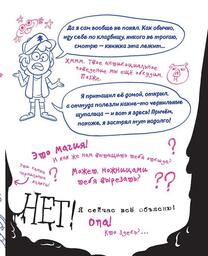 Да я сам вообще не понял. Как обычно,
иду себе по кладбищу, никого не трогаю,
смотрю – книжка эта лежит...
Хммм. Твоё антисоциальное
поведение мы ещё обсудим.
Позже.
Я притащил её домой, открыл,
а оттуда полезли какие-то чернильные
щупальца – и вот я здесь! Причём,
похоже, я застрял тут надолго!
Это магия!
И как же нам вытащить тебя оттуда?
??
Может ножницами
тебя вырезать?
??
НЕТ!
Я сейчас всё объясню!
Опа!
Кто здесь?...